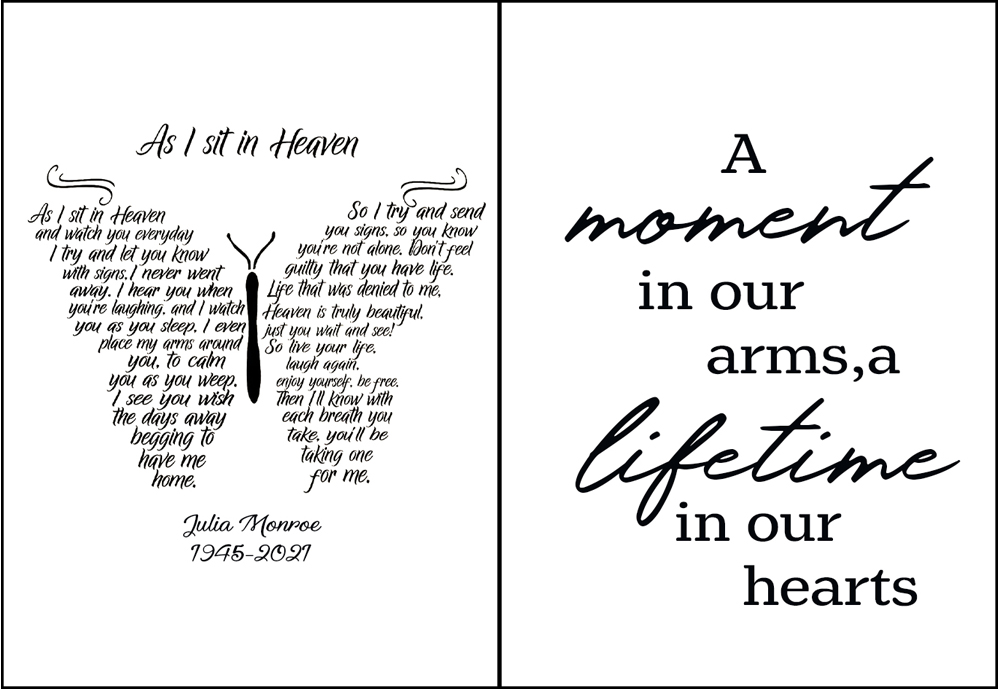 As I sit in Heaven
As I sit in Heaven
and watch you everyday
I try and let you know
with signs. I never went
away. I hear you when
you're laughing. and I watch
you as you sleep. I even
place my arms around
you, to calm
you as you weep.
I see you wish
the days away
begging to
have me
home.
So I try and send
you signs. so you know
you're not alone. Don't feel
guilty that you have life.
Life that was denied to me.
Heaven is truly beautiful.
just you wait and see!
So live your life.
laugh again.
enjoy yourself. be free.
Then I'll know with
each breath you
take. you'll be
taking one
for me.
Julia Monroe
1945-2021
A
moment
in our
arms,a
lifetime
in our
hearts